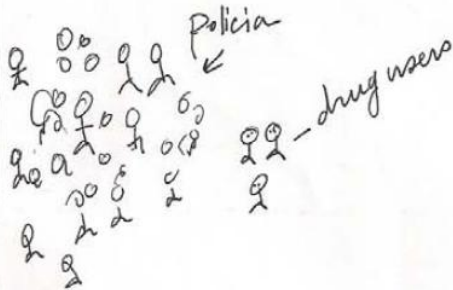 Policia
drug users